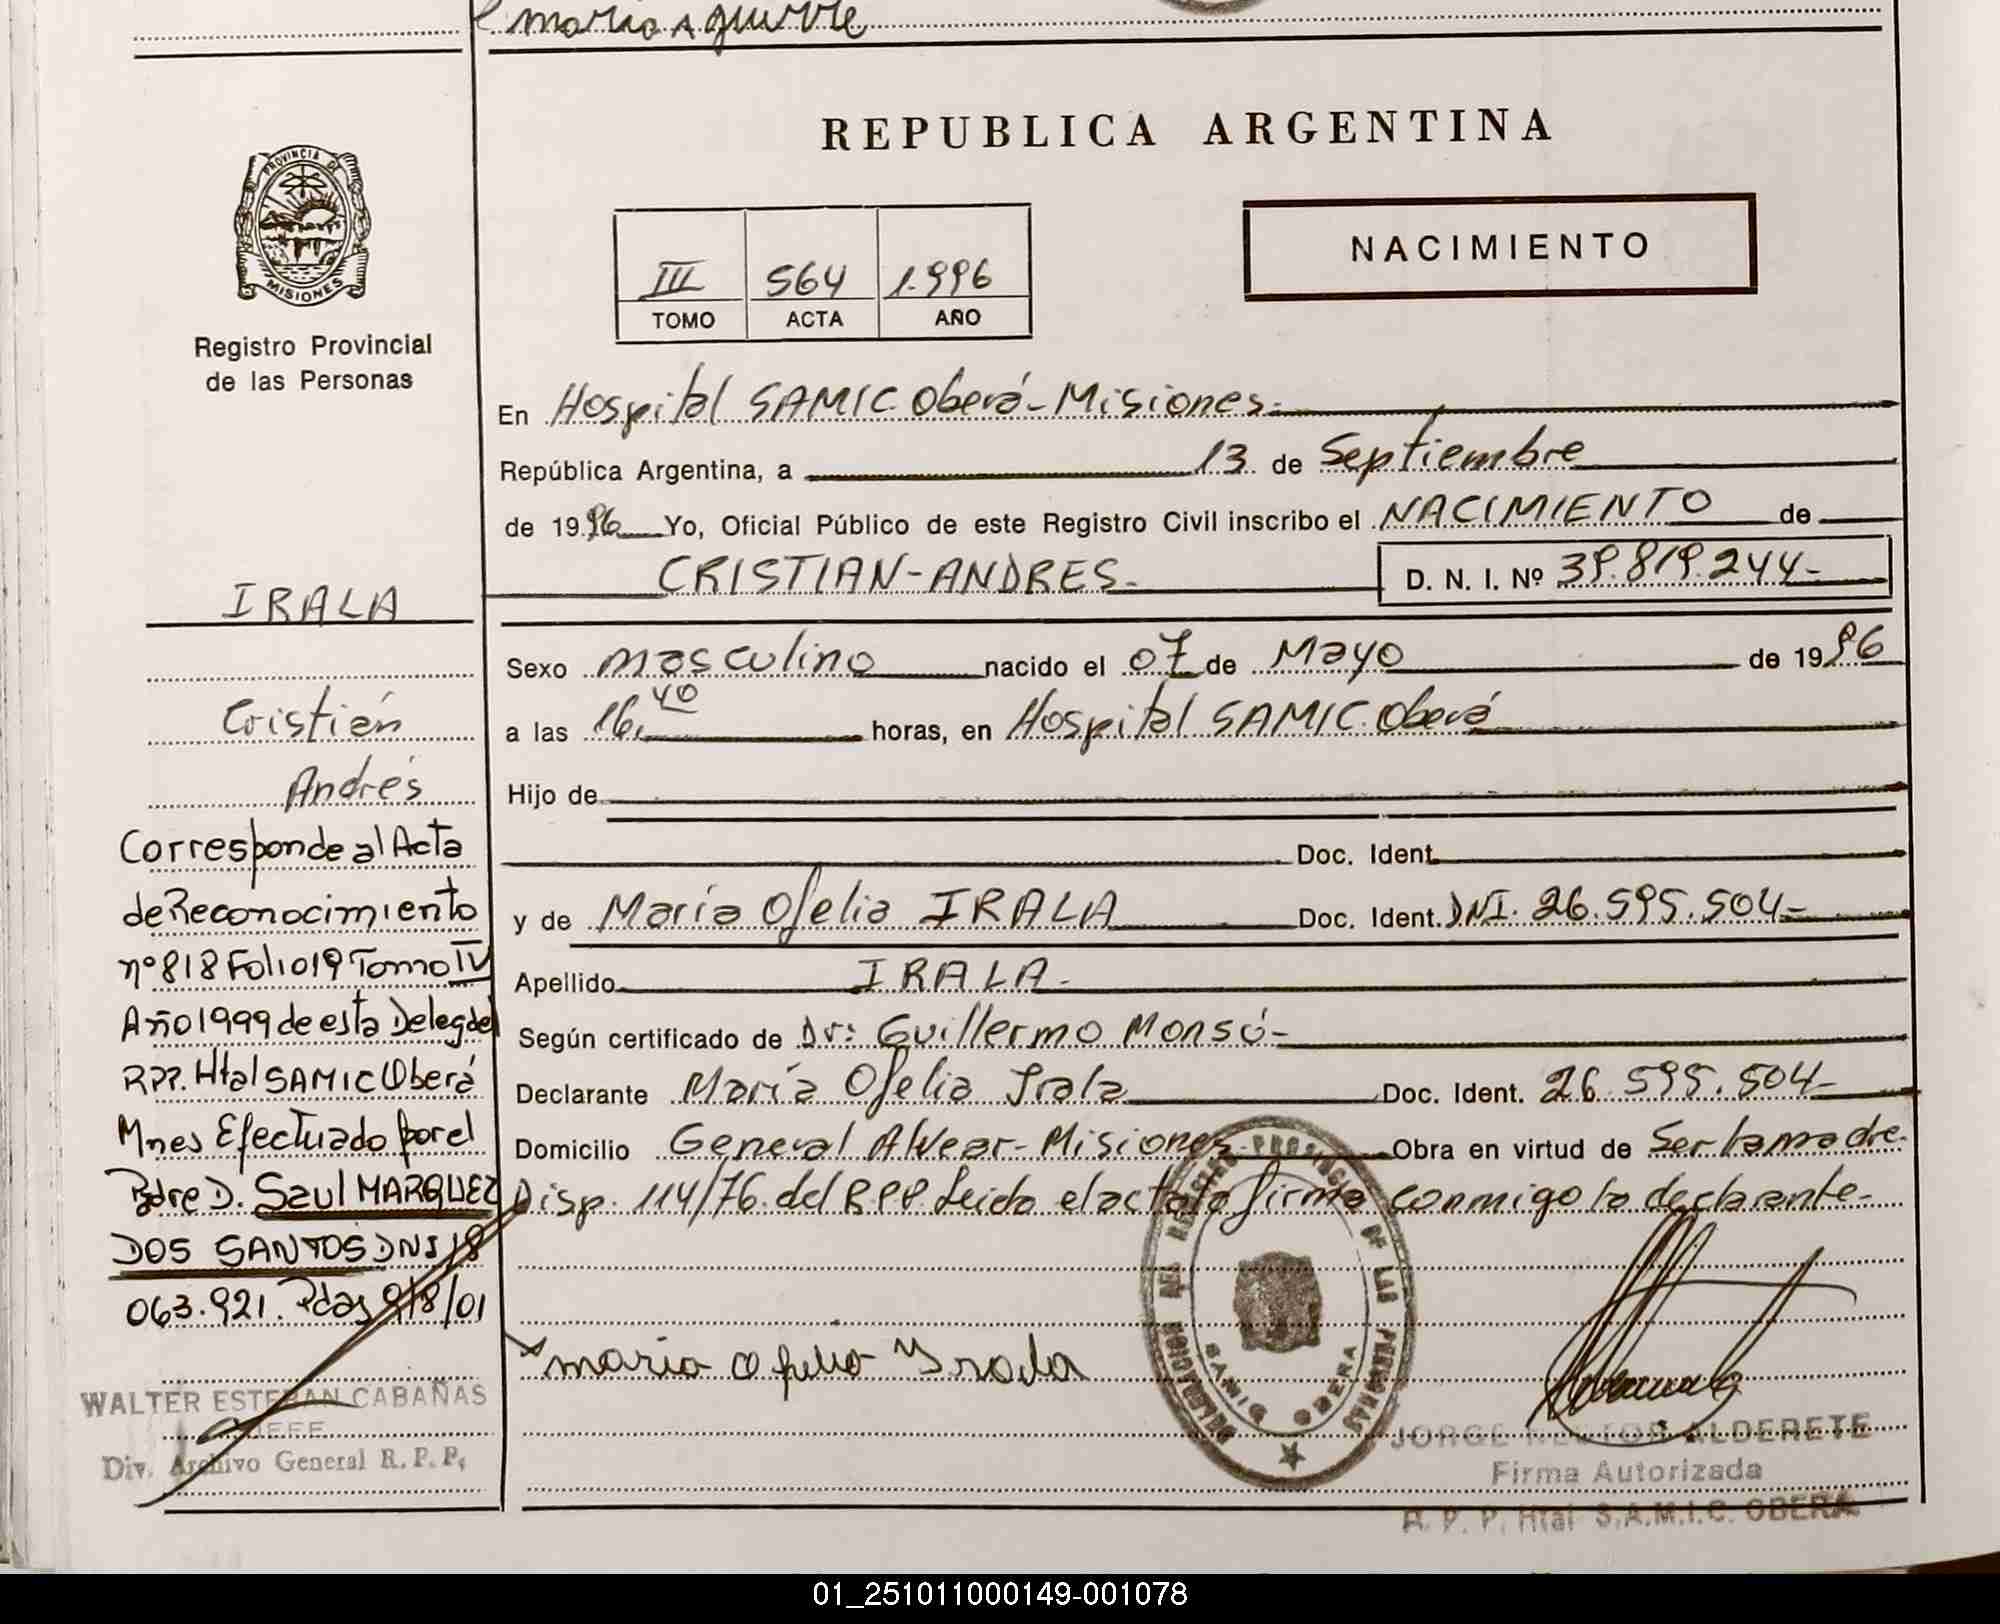 maria Aguirre
REPUBLICA ARGENTINA
PROVINCIA DE
MISIONES
Registro Provincial
de las Personas
III 564 1.996
TOMO ACTA AÑO
NACIMIENTO
En Hospital SAMIC. Oberá - Misiones.
República Argentina, a 13 de Septiembre
de 1996 Yo, Oficial Público de este Registro Civil inscribo el NACIMIENTO de
CRISTIAN-ANDRES- D. N. I. Nº 39.819.244-
Sexo masculino nacido el 07 de Mayo de 1996
a las 16,40 horas, en Hospital SAMIC. Oberá
Hijo de
Doc. Ident.
y de María Ofelia IRALA Doc. Ident. DNI. 26.595.504-
Apellido IRALA-
Según certificado de Dr: Guillermo Monsó-
Declarante María Ofelia Irala Doc. Ident. 26.595.504-
Domicilio General Alvear-Misiones- Obra en virtud de Ser la madre.
Disp. 114/76 del R.P.P. Leida el acta la firma conmigo la declarante-
maria Ofelia Irala
DELEGACION DEL REGISTRO PROVINCIAL DE LAS PERSONAS
SAMIC OBERA
JORGE NESTOR ALDERETE
Firma Autorizada
R. P. P. Htal S.A.M.I.C. OBERA
IRALA
Cristián
Andrés
Corresponde al Acta
de Reconocimiento
nº 818 Folio 19 Tomo IV
Año 1999 de esta Deleg del
RPP. Htal SAMIC Oberá
Mnes Efectuado por el
Padre D. Saul MARQUEZ
DOS SANTOS DNI 18
063.921. Pdas 9/8/01
WALTER ESTEBAN CABAÑAS
JEFE
Div. Archivo General R. P. P.
01_251011000149-001078